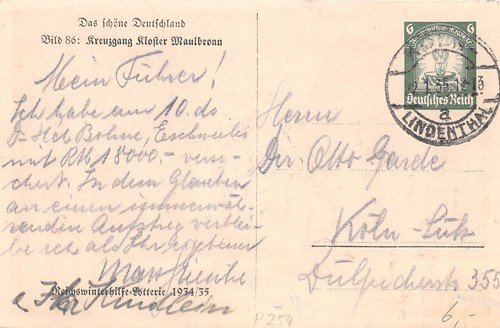 Das schöne Deutschland
Bild 86: Kreuzgang Kloster Maulbronn
Mein Führer!
Ich habe am 10. ds.
Bohne, Eschweiler
mit RM 18000.- versi-
chert. In dem Glauben
an einen immerwäh-
renden Aufstieg verblei-
be ich als Ihr ergebener
Reichswinterhilfe-Lotterie 1934/35
6
6
Deutsches Reich
a
LINDENTHAL
Herrn
Dir. Otto Garde
Köln-Sülz
Dülkenerstr. 355
P254
6,-